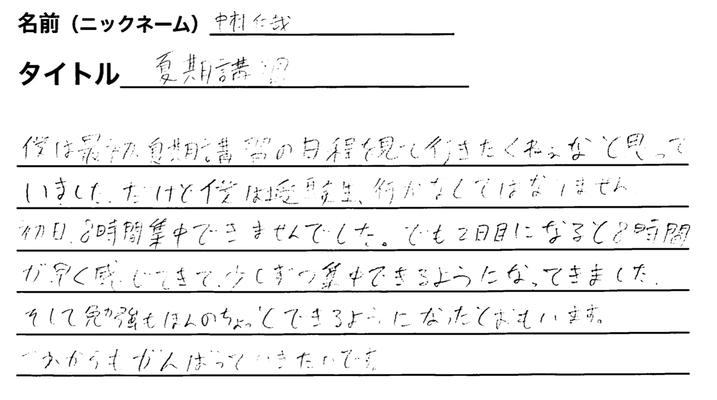 名前（ニックネーム） 中村仁哉
タイトル 夏期講習
僕は最初夏期講習の日程を見て行きたくねぇなと思って
いました。だけど僕は受験生、行かなくてはなりません
初日、8時間集中できませんでした。でも2日目になると8時間
が早く感じてきて、少しずつ集中できるようになってきました、
そして勉強もほんのちょっとできるようになったとおもいます。
これからもがんばっていきたいです